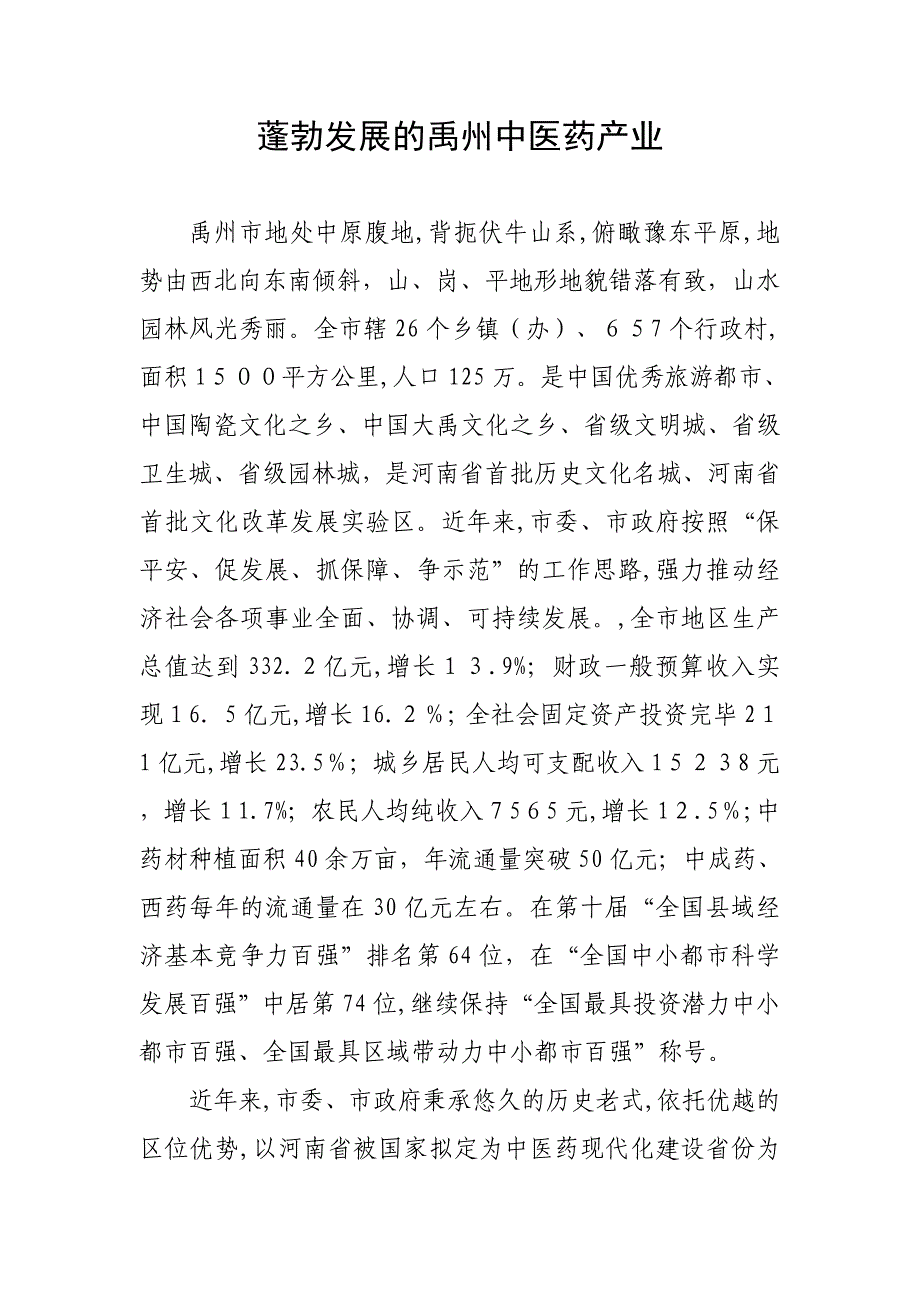 蓬勃发展的禹州中医药产业
禹州市地处中原腹地,背扼伏牛山系,俯瞰豫东平原,地
势由西北向东南倾斜，山、岗、平地形地貌错落有致，山水
园林风光秀丽。全市辖26个乡镇（办）、６５７个行政村,
面积１５００平方公里,人口125万。是中国优秀旅游都市、
中国陶瓷文化之乡、中国大禹文化之乡、省级文明城、省级
卫生城、省级园林城，是河南省首批历史文化名城、河南省
首批文化改革发展实验区。近年来,市委、市政府按照“保
平安、促发展、抓保障、争示范”的工作思路,强力推动经
济社会各项事业全面、协调、可持续发展。,全市地区生产
总值达到332.2亿元,增长１３.9%；财政一般预算收入实
现16．5亿元,增长16.２％；全社会固定资产投资完毕21
1亿元,增长23.5%；城乡居民人均可支配收入１５２３８元
，增长11.7%；农民人均纯收入７５６５元,增长１２.５%;中
药材种植面积40余万亩，年流通量突破50亿元；中成药、
西药每年的流通量在30亿元左右。在第十届“全国县域经
济基本竞争力百强”排名第64位，在“全国中小都市科学
发展百强”中居第74位,继续保持“全国最具投资潜力中小
都市百强、全国最具区域带动力中小都市百强”称号。
近年来,市委、市政府秉承悠久的历史老式,依托优越的
区位优势,以河南省被国家拟定为中医药现代化建设省份为